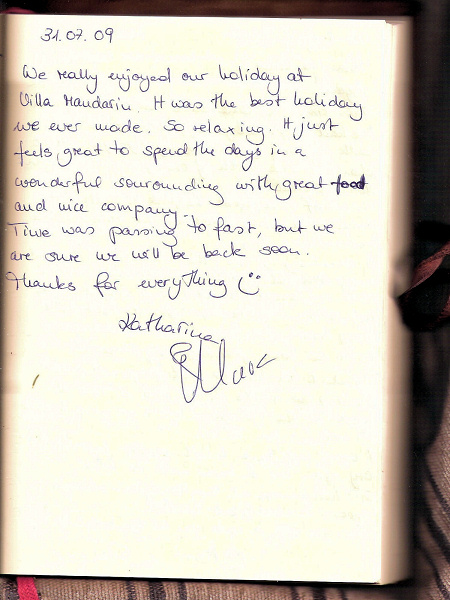 31.07.09
We really enjoyed our holiday at
Villa Mandarin. It was the best holiday
we ever made. So relaxing. It just
feels great to spend the days in a
wonderful sourrounding with great food
and nice company.
Time was passing to fast, but we
are sure we will be back soon.
Thanks for everything
Katharina